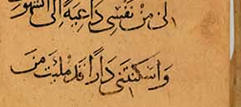 الى من نفسي داعية الى الشهوا
واسكنتني دارا قد ملئت من